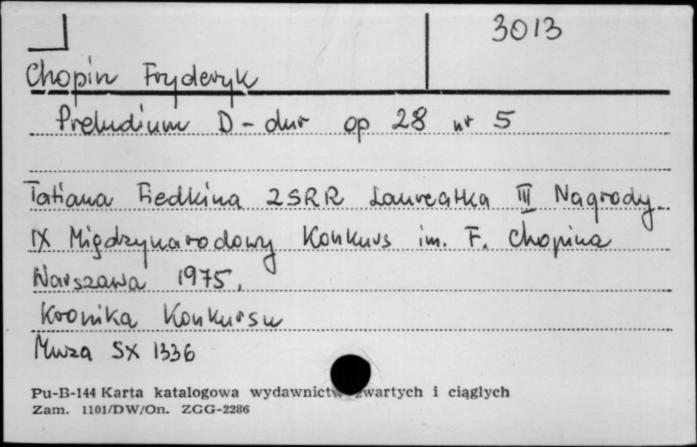 3013
Chopin Fryderyk
Preludium D-dur op 28 nr 5
Tatiana Fiedkina ZSRR Laureatka III Nagrody
IX Międzynarodowy Konkurs im. F. Chopina
Warszawa 1975.
Kronika Konkursu
Muza SX 1336
Pu-B-144 Karta katalogowa wydawnictw zwartych i ciąglych
Zam. 1101/DW/On. ZGG-2286